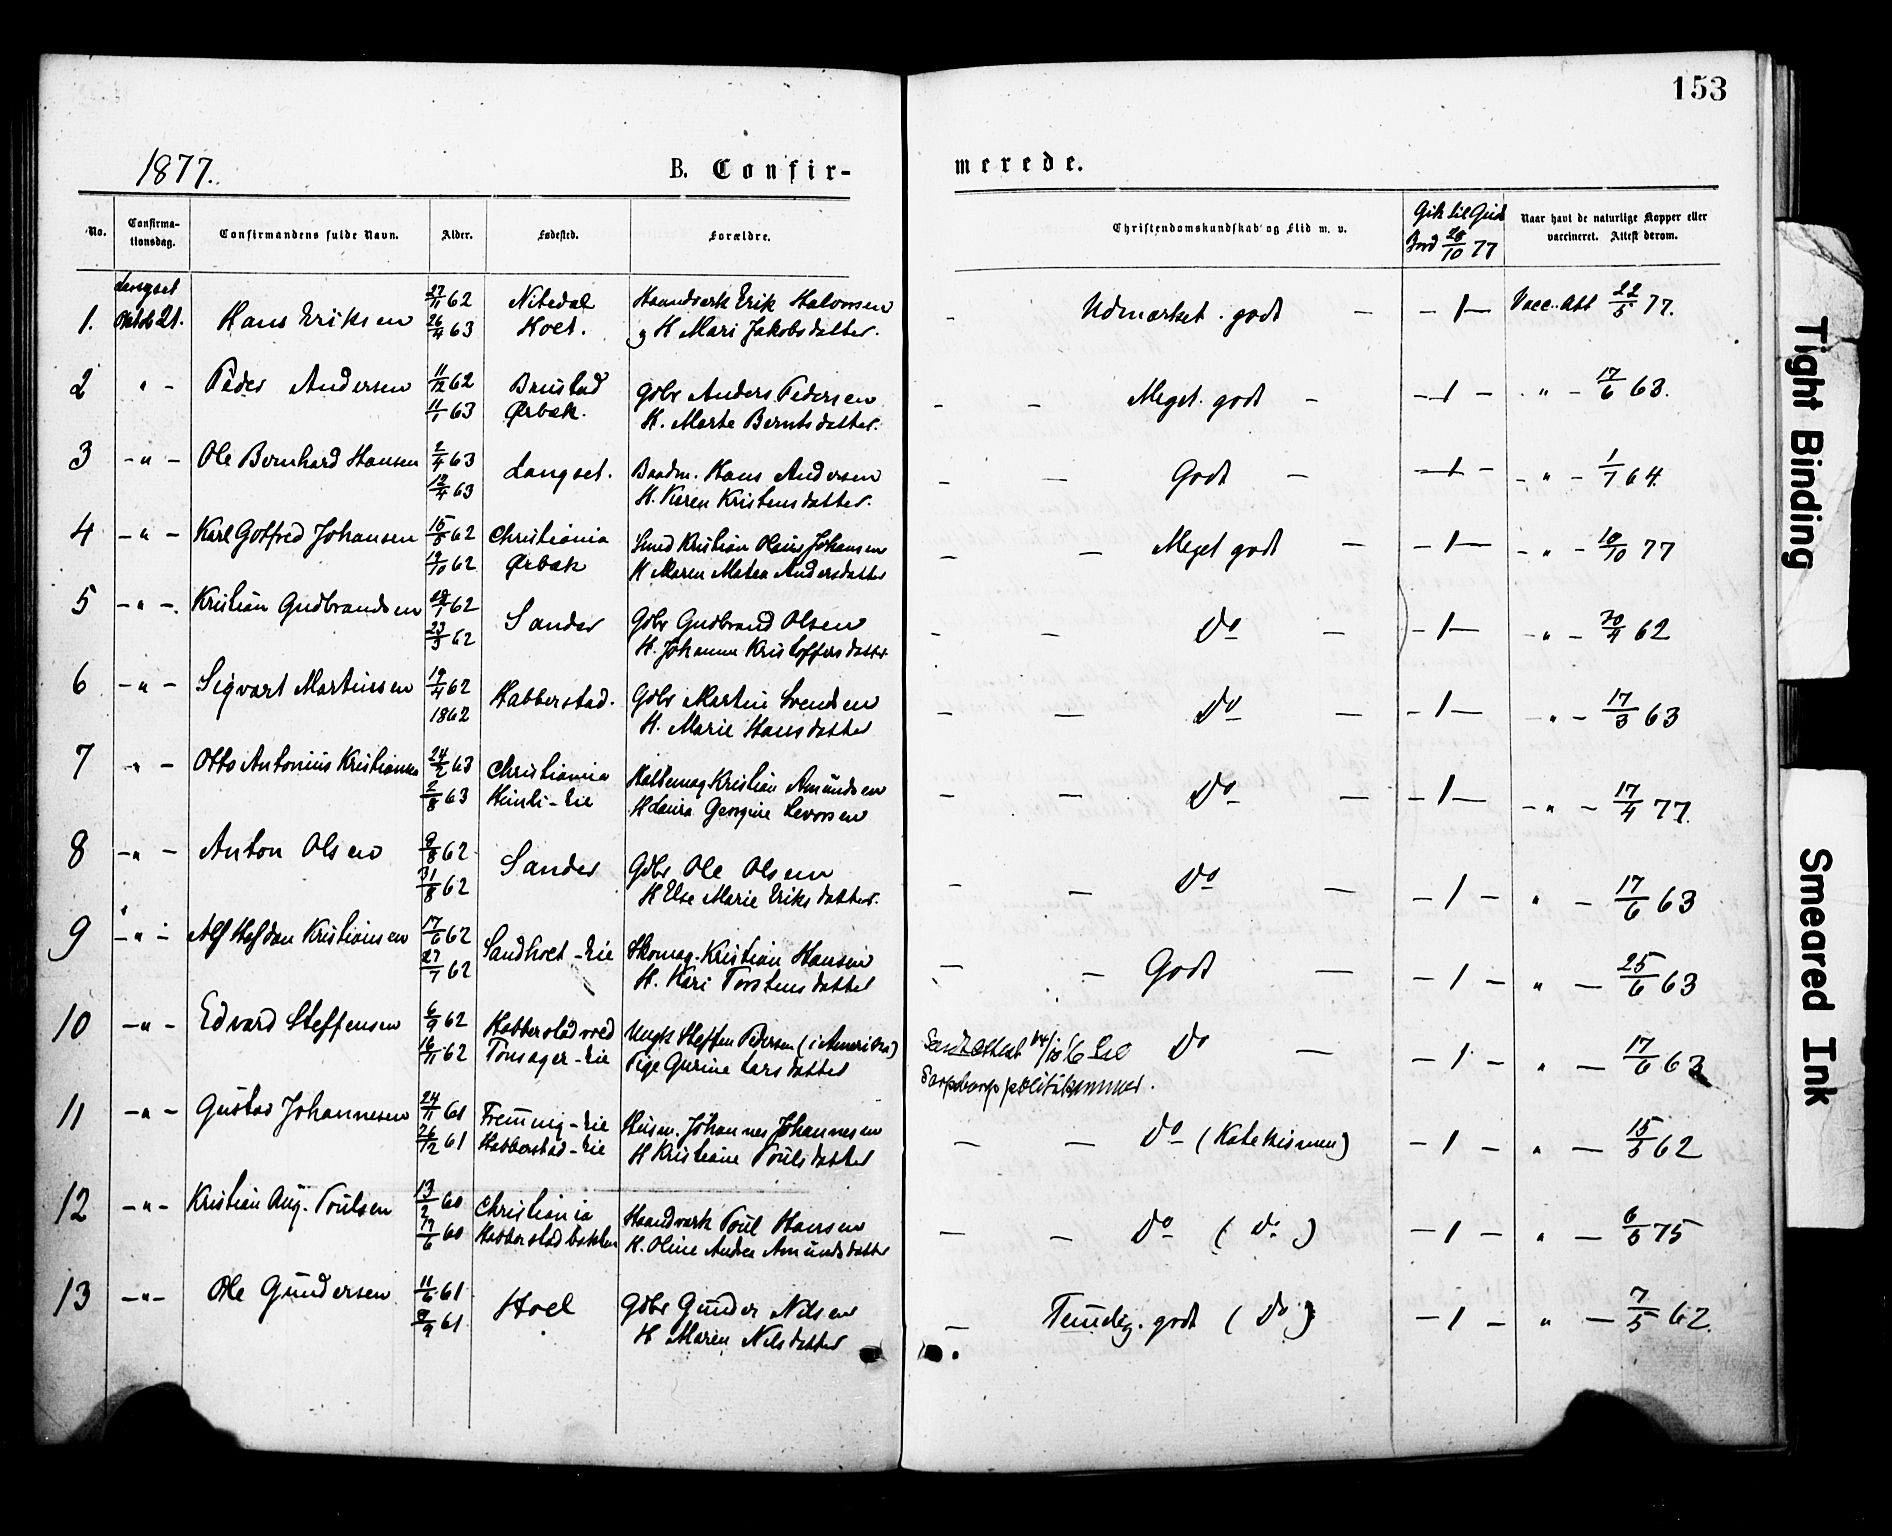 153
1877. B. Confir-merede.
No. Confirma-tionsdag. Confirmandens fulde Navn. Alder. Fødested. Forældre. Christendomskundskab og Flid m. v. Gik til Guds Bord 28/10 77 Naar havt de naturlige Kopper eller vaccineret. Attest derom.
Langset
1. Oktob 21. Hans Eriksen 27/11 62 Nitedal Haandværk Erik Halvorsen - Udmærket godt - - 1 - Vacc. Att 22/5 77.
26/4 63 Hoel. og H Mari Jakobsdatter.
2 " - Peder Andersen 11/12 62 Brustad Gdbr Anders Pedersen - - Meget godt - - 1 - " - 17/6 63.
11/1 63 Ørbæk. H. Marte Berntsdatter.
3 - " - Ole Bernhard Hansen 2/4 63 Langset. Baadm. Hans Andersen - - Godt - - 1 - - " - 1/7 64.
12/4 63 H. Karen Kristensdatter.
4 - " - Karl Gotfred Johansen 15/8 62 Christiania Smed Kristian Olaus Johansen - - Meget godt - - 1 - - " - 10/10 77
19/10 62 Ørbæk H Maren Matea Andersdatter
5 - " - Kristian Gudbrandsen 62 Sander Gdbr Gudbrand Olsen - - Do - - 1 - - " - 30/4 62
23/3 62 H. Johanne Kristoffersdatter
6 - " - Sigvart Martinsen 19/4 62 Habberstad. Gdbr Martin Svendsen - - Do - - 1 - - " - 17/3 63
1862 H. Marie Hansdatter
7 " - Otto Antonius Kristiansen 24/2 63 Christiania Kristian Amundsen - - Do - - 1 - - " - 17/4 77.
2/8 63 -eie H Laura Georgine Levorsen
8 - " - Anton Olsen 9/8 62 Sander Gdbr Ole Olsen - - Do - - 1 - " - 17/6 63
31/8 62 H Else Marie Eriksdatter.
9 - " - Alf Halfdan Kristiansen 17/6 62 Sandhoel-Eie Skomag. Kristian Hansen - - Godt - - 1 - " - 25/6 63
27/7 62 H. Kari Torstensdatter
10 - " - Edvard Steffensen 6/9 62 Habberstadvød Ungk Steffen Pedersen (i Amerika) Sendt Attest til Do - - 1 - " - 17/6 63
16/11 62 Tonsager-Eie Pige Gurine Larsdatter Sarpsborg politikammer.
11 - " - Gustav Johannesen 24/11 61 Fremming-Eie Husm. Johannes Johannesen - - Do (Katekismen) - 1 - " - 15/5 62
26/12 61 Habberstad-Eie H Kristiane Poulsdatter
12 - " - Kristian Aug. Poulsen 13/2 60 Christiania Haandværk Poul Hansen - - Do (Do) - 1 - " - 6/5 75
17/6 60 Habberstadbakken H. Oline Andrea Amundsdatter
13 - " - Ole Gundersen 11/6 61 Hoel Gdbr Gunder Nilsen - Temlig. godt (Do) - 1 - " - 7/5 62.
8/9 61 H Maren Nilsdatter
Tight Binding
Smeared Ink